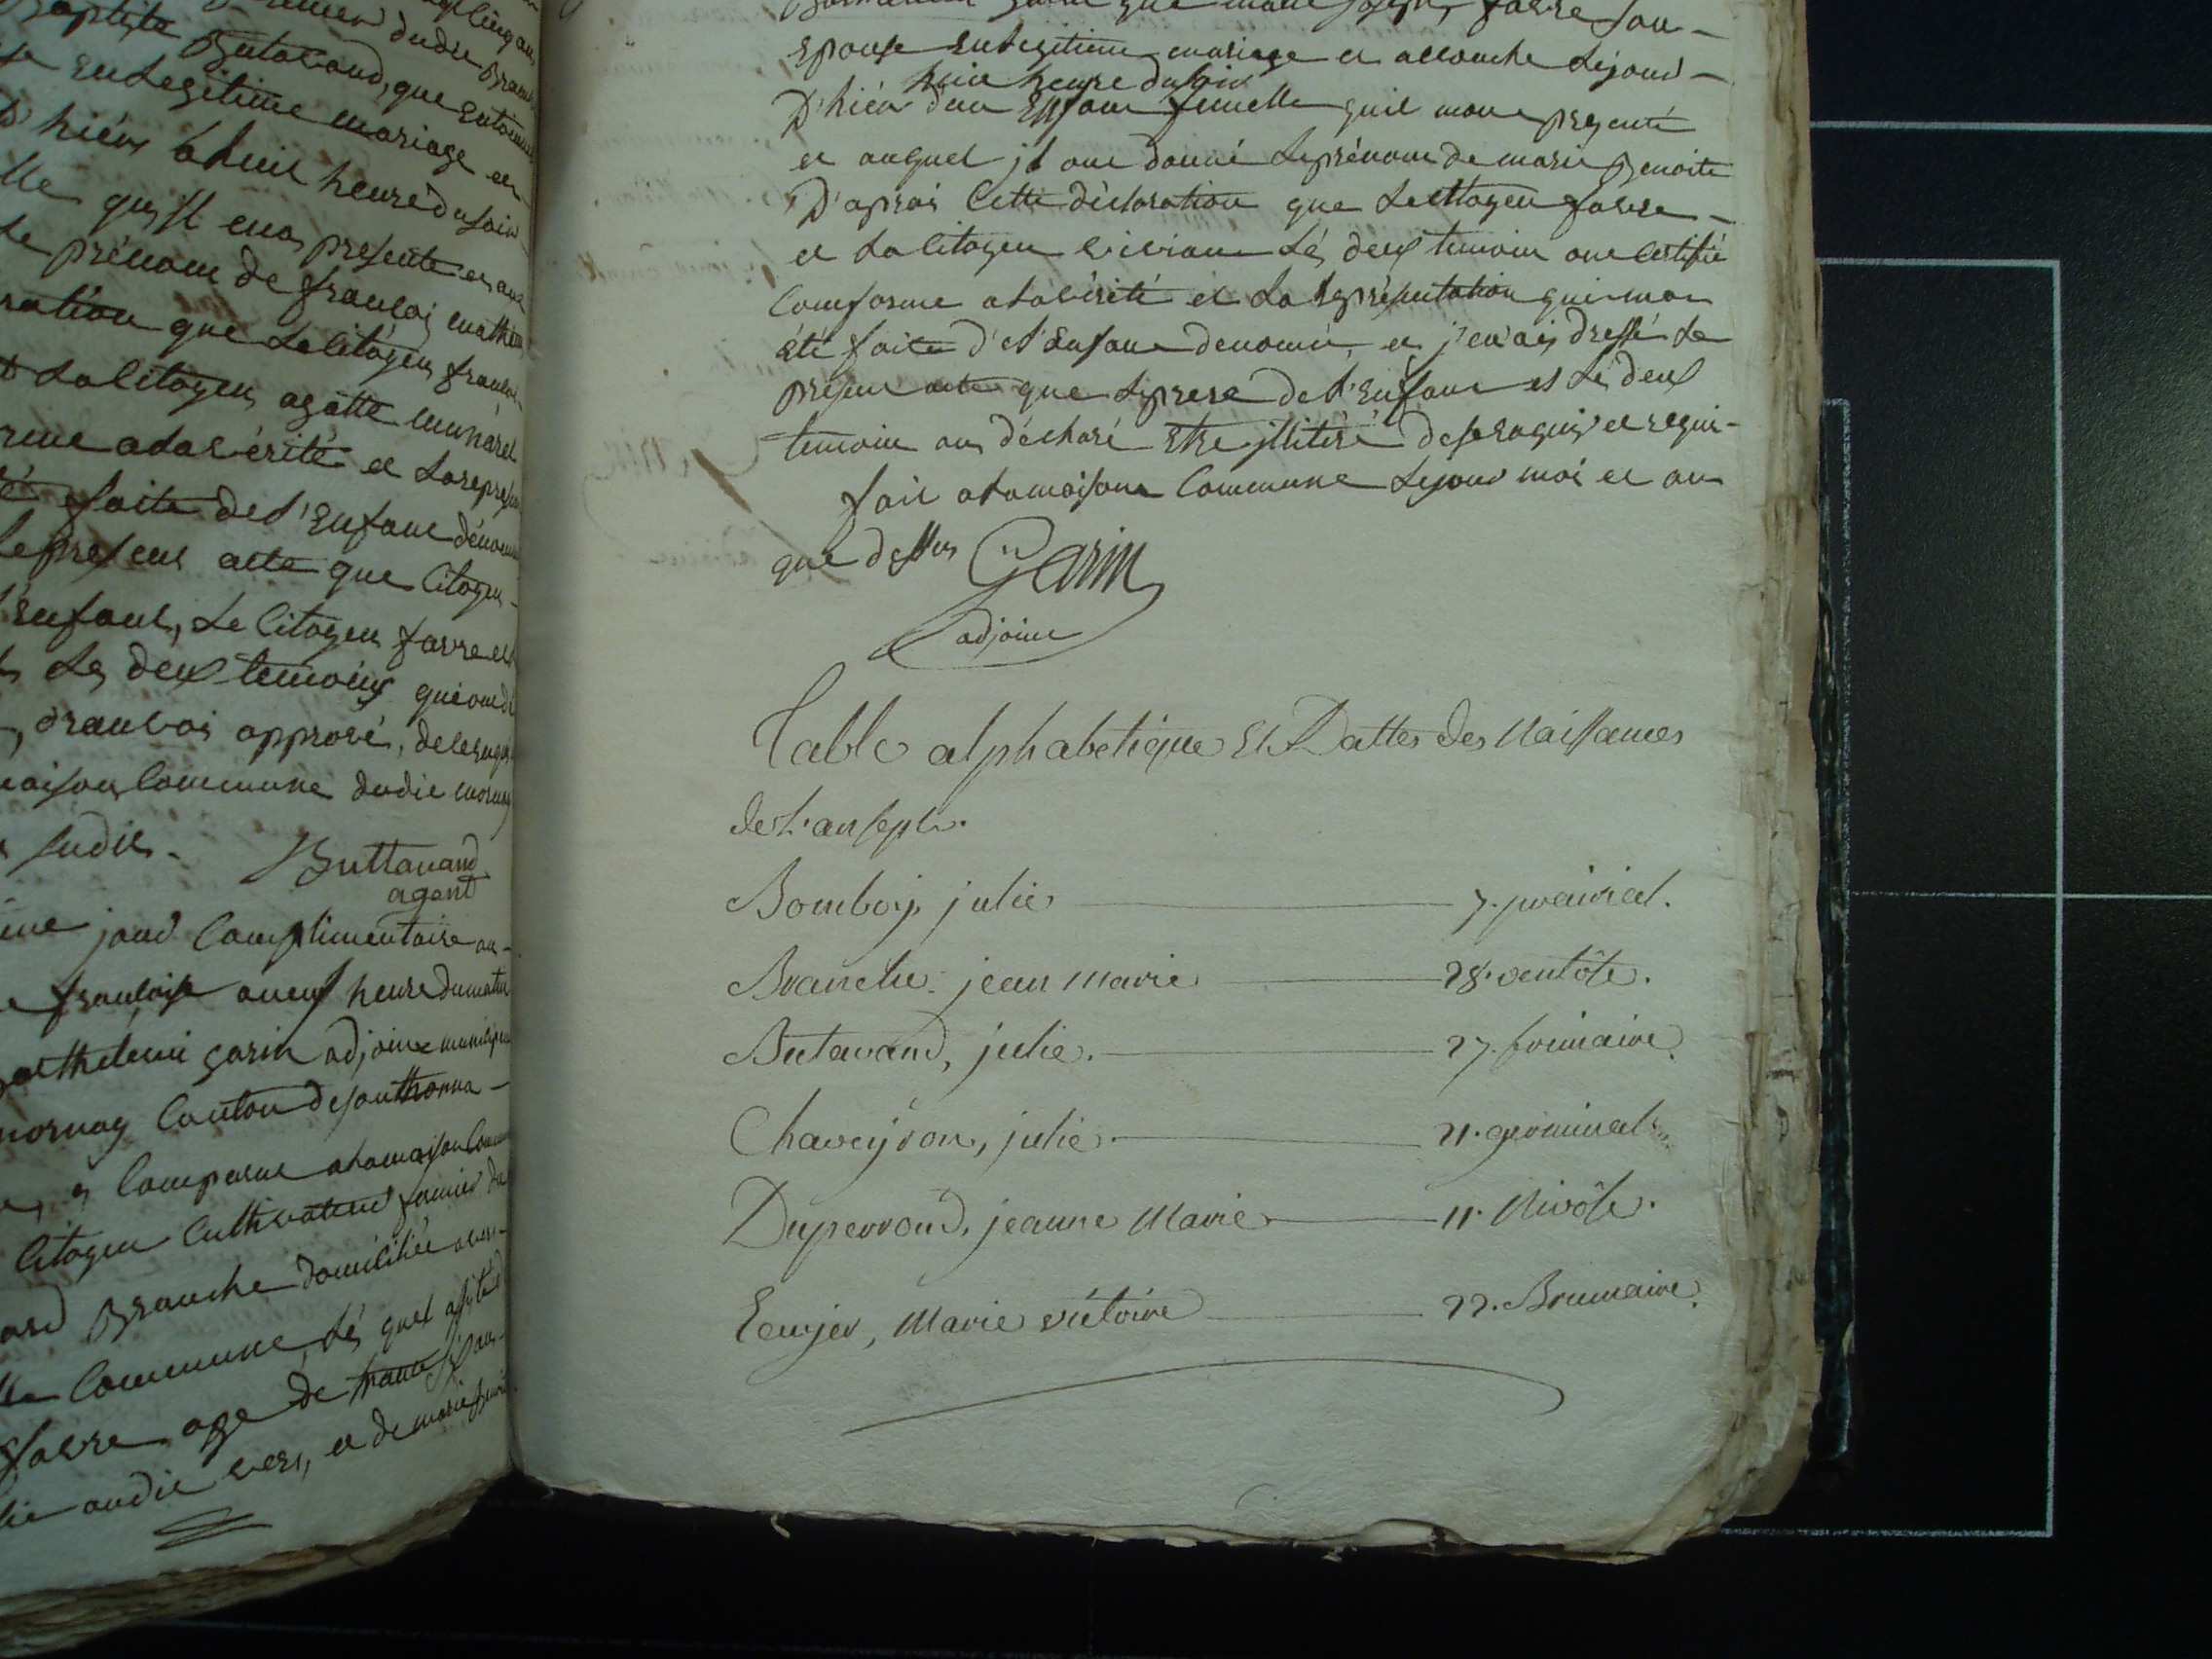 Baptiste
Butavand, que
en Legitime mariage et
D'hiér a huit heure du soir
lle qu'il ma presente et au
le prénom de francois
ration que Le Citoyen
et La Citoyen agatte
rme a La vérité et La repres
faite de l'Enfant dénomé
Le present acte que Citoyen
l'Enfant, Le Citoyen favre et
Les deux temoins qui ont
apprové, de ce
maison Commune dudit mornay
susdits. Buttavand
agent
jour Complimentaire an
francoise a neuf heure du matin
Barthelemi garin adjoint municipal
mornay Canton de sonthonna
Comparue a La maison Commune
Citoyen Cultivateur fermier
Branche domicilié
Commune, Lés quel assisté
favre age de trante six ans
audit vers, et de marie
favre son
Epouse En Legitime mariage et accouche Le jour
huit heure du soir
D'hiér d'un Enfant femelle qu'il mon presenté
et auquel il ont donné Le prénom de marie Benoite
D'aprais Cette déclaration que Le Citoyen favre
et La Citoyen vivian Lés deux temoin ont Certifié
Comforme a La vérité et La représentation qui mon
été faite d'el'Enfant denomé, et j'en ais dressé Le
present acte que Le prere de l'Enfant et Lés deux
temoin on déclaré Etre illitéré de ce enquis et requi
fait a La maison Commune Le jour moi et an
que dessus Garin
adjoint
Table alphabetique Et Dattes des Naissances
de L'an sept.
Bomboy, julie 7. prairial.
Branche. jean Marie 28. ventôse.
Butavand, julie. 27. frimaire.
Chaveyron, julie. 21. germinal
Duperroud, jeanne Marie 11. Nivôse.
Eaujer, Marie victoire 22. Brumaire.